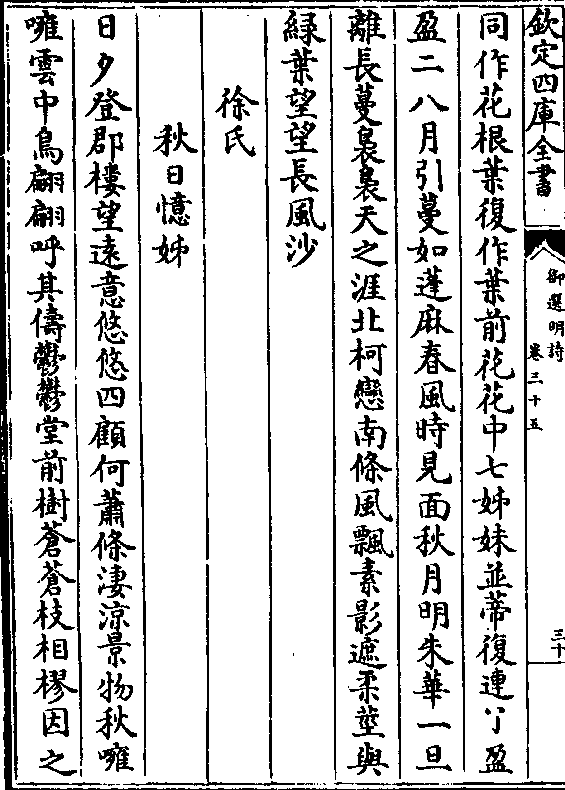 欽定四庫全書
御選明詩
卷三十五
三十
同作花根葉復作葉前花花中七姊妹並蒂復連丫盈
盈二八月引蔓如蓬麻春風時見面秋月明朱華一旦
離長蔓裊裊天之涯北柯戀南條風飄素影遮柔莖與
緑葉望望長風沙
徐氏
秋日憶姊
日夕登郡樓望遠意悠悠四顧何蕭條淒涼景物秋嗈
嗈雲中鳥翩翩呼其儔鬱鬱堂前樹蒼蒼枝相樛因之